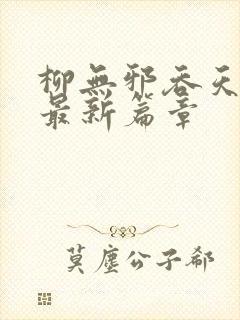 柳無邪吞天
最新篇章
莫塵公子郗